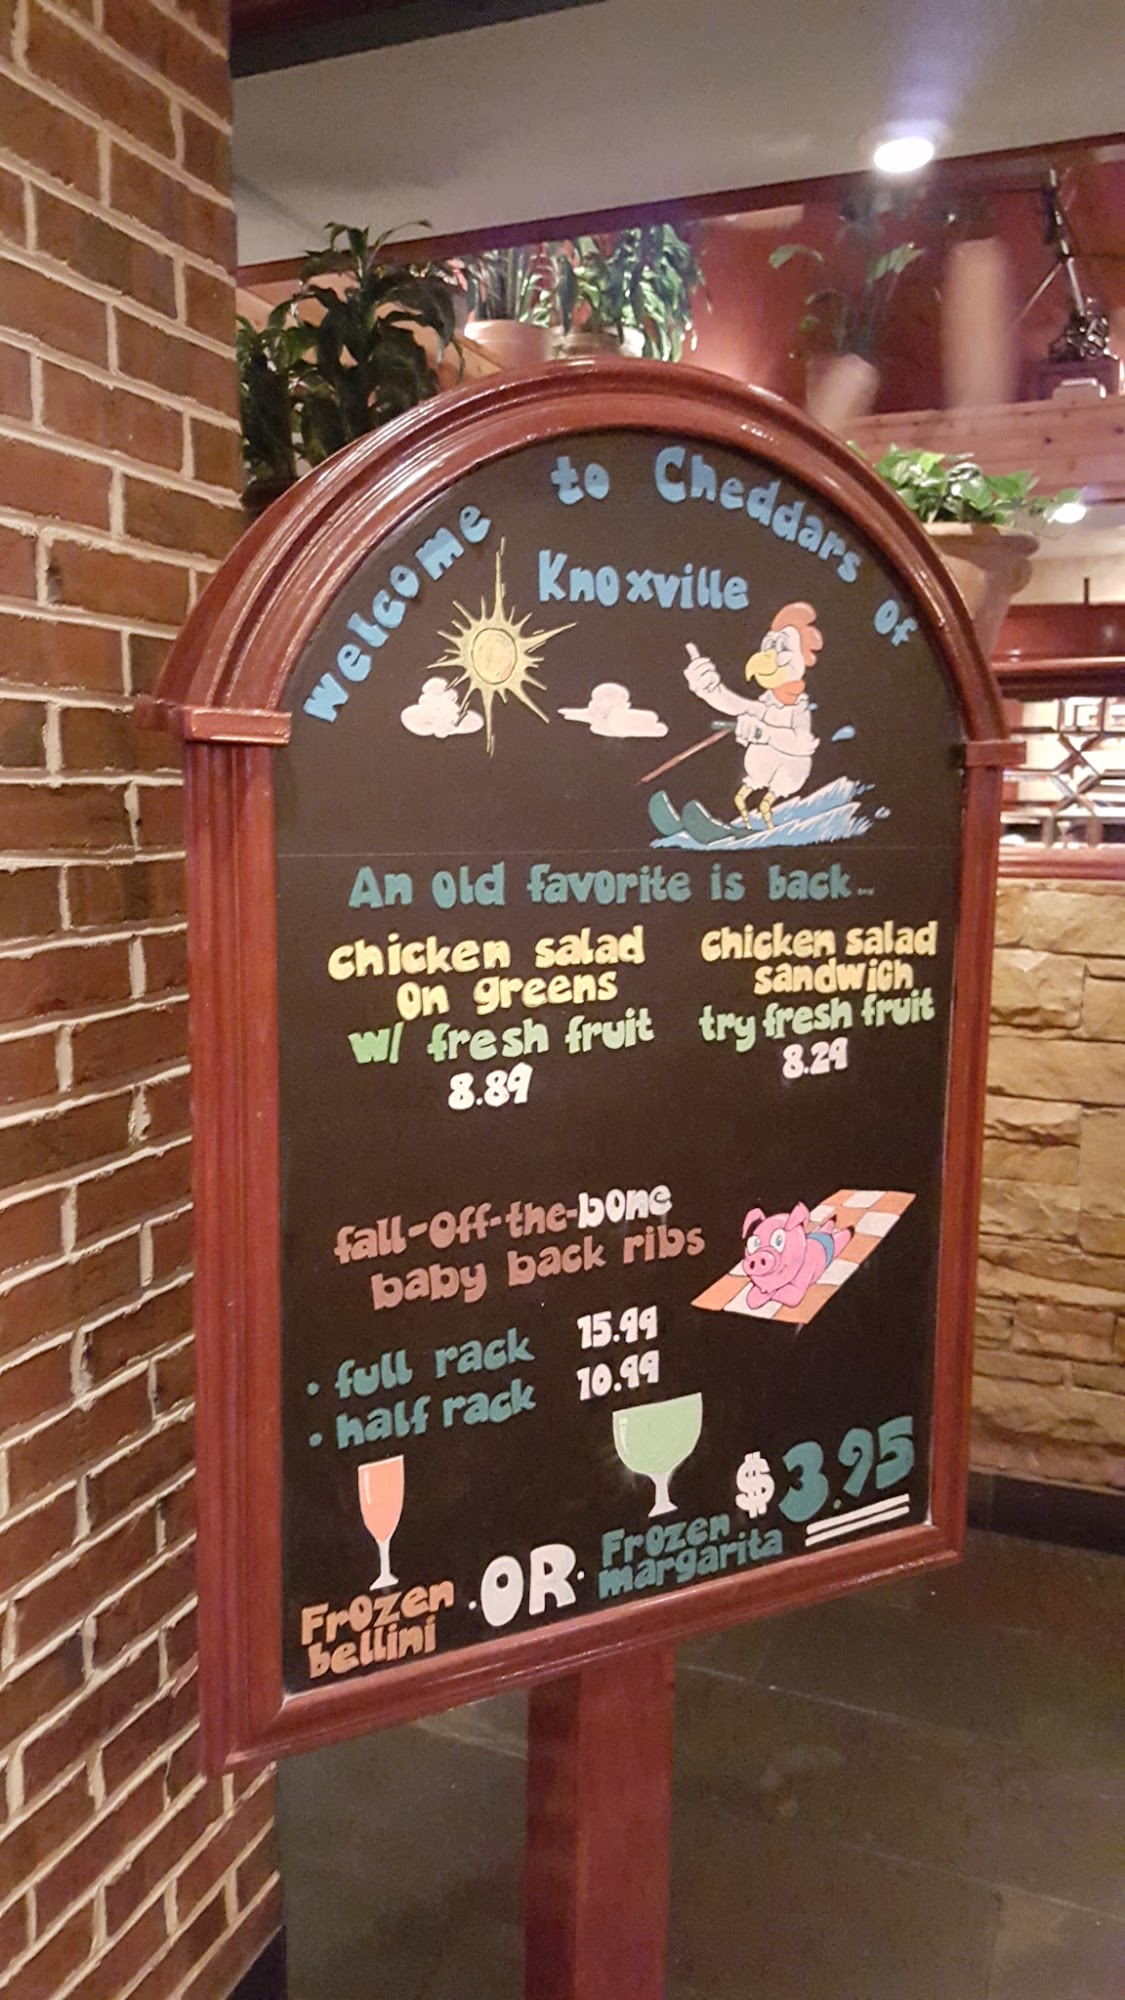 Welcome to Cheddars of
Knoxville
An old favorite is back...
chicken salad
on greens
w/ fresh fruit
8.89
chicken salad
sandwich
try fresh fruit
8.29
fall-off-the-bone
baby back ribs
• full rack 15.99
• half rack 10.99
Frozen
bellini
•OR•
Frozen
margarita
$3.95